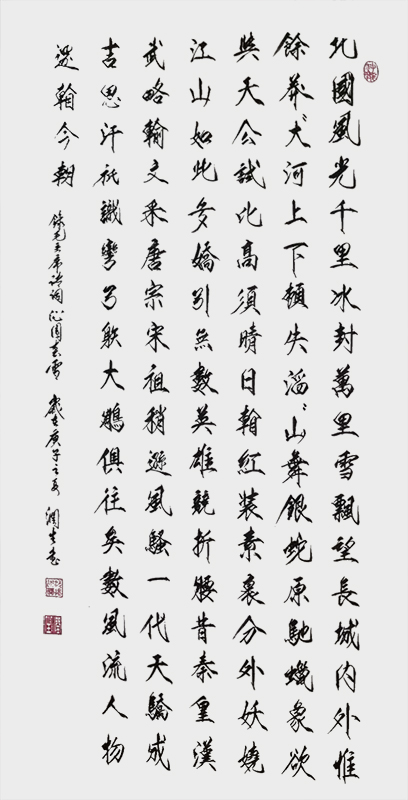 北國風光千里冰封萬里雪飄望長城内外惟
餘莽〻大河上下頓失滔〻山舞銀蛇原馳蠟象欲
與天公試比高須晴日看紅裝素裹分外妖嬈
江山如此多嬌引無數英雄競折腰昔秦皇漢
武略輸文采唐宗宋祖稍遜風騷一代天驕成
吉思汗祇識彎弓射大鵰俱往矣數風流人物
還看今朝
錄毛主席詩詞沁園春雪 歲在庚子之夏 潤生書